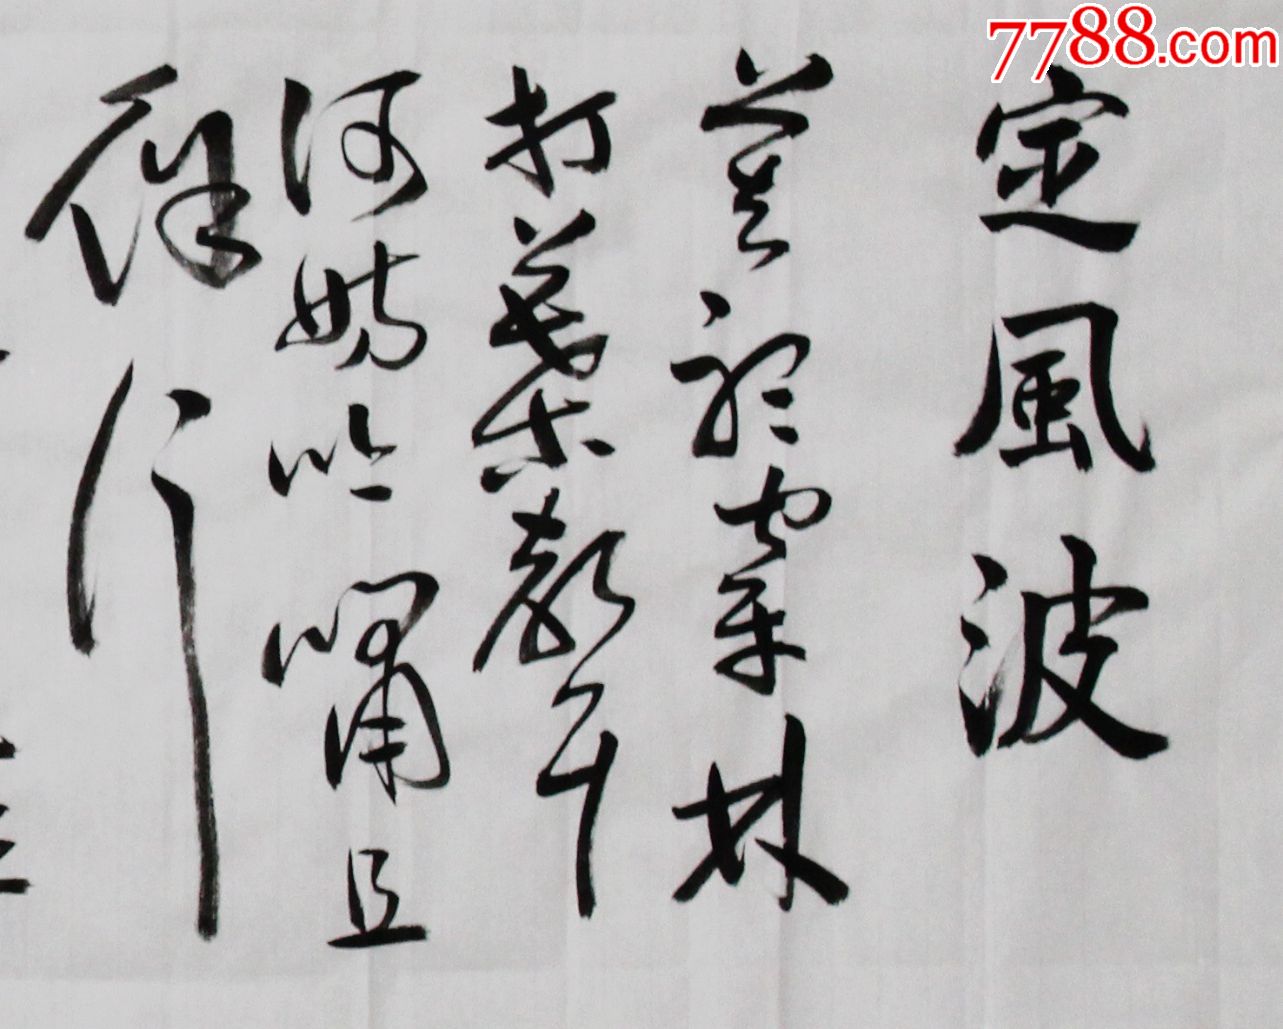 7788.com
定風波
莫聽穿林
打葉聲
何妨吟嘯且
徐行